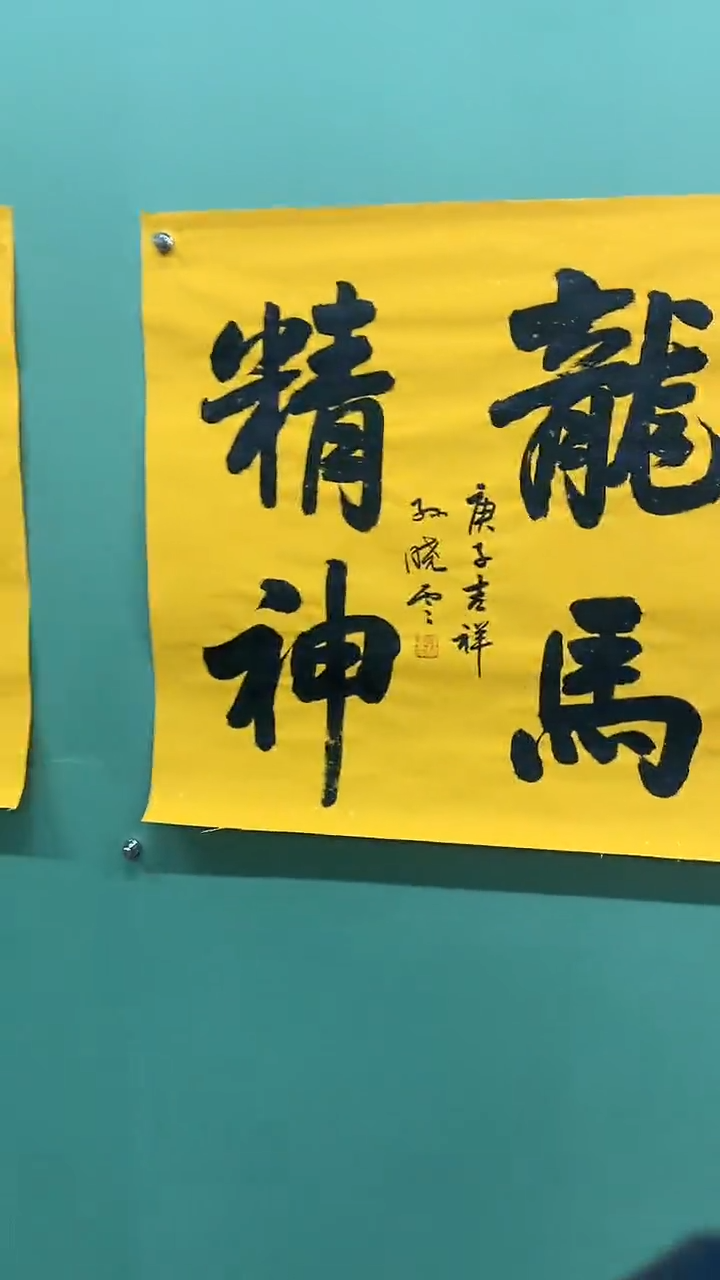 龍馬
精神
庚子吉祥
孙晓云